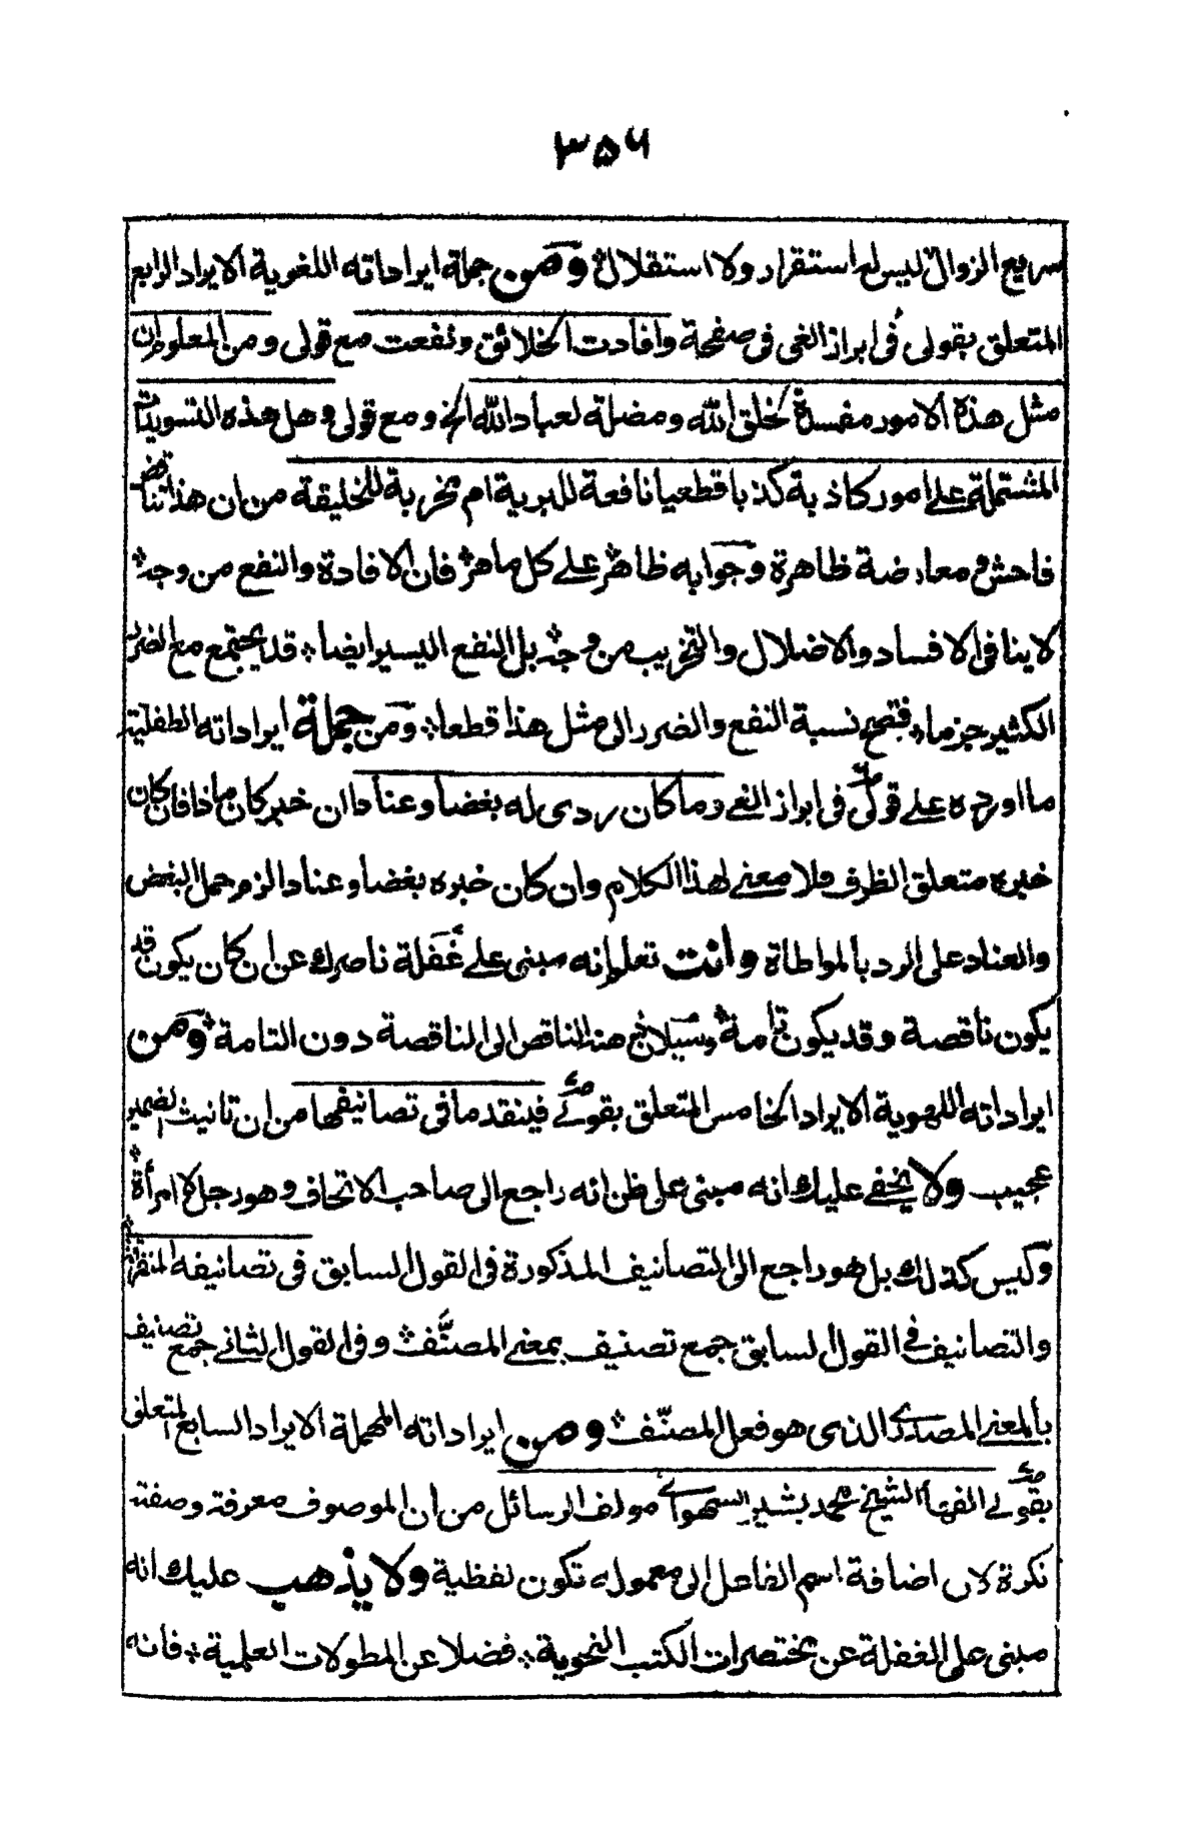 ۳۵۶
سريع الزوال ليس له استقرار ولا استقلال ومن جملة ايراداته اللغوية الايراد الرابع
المتعلق بقولى فى ابراز الغى فى صفحة وافادت الخلائق ونفعت مع قولى ومن المعلوم ان
مثل هذة الامور مفسدة لخلق الله ومضلة لعباد الله الخ ومع قولى وهل هذه التسويدات
المشتملة على امور كاذبة كذبا قطعيا نافعة للبرية ام مخربة للخليقة من ان هذا تناقض
فاحش ومعارضة ظاهرة وجوابه ظاهر على كل ماهر فان الافادة والنفع من وجه
لا ينافى الافساد والاضلال والتخريب من وجه بل النفع اليسير ايضا قد يجتمع مع الضرر
الكثير جزما فتصح نسبة النفع والضرر الى مثل هذا قطعا ومن جملة ايراداته الطفلية
ما اورده على قولى فى ابراز الغى وما كان ردى له بغضا وعنادا ان خبر كان ماذا فان كان
خبره متعلق الظرف فلا معنى لهذا الكلام وان كان خبره بغضا وعنادا لزم حمل البغض
والعناد على الرد بالمواطاة وانت تعلم انه مبنى على غفلة ناصرك عن ان كان يكون قد
يكون ناقصة وقد يكون تامة وسبيلان خبر هذا الناقص الى الناقصة دون التامة ومن
ايراداته اللهوية الايراد الخامس المتعلق بقولى فينقد ما فى تصانيفها من ان تانيث الضمير
عجيب ولا يخفى عليك انه مبنى على ظن انه راجع الى صاحب الاتحاف وهو رجل لا امرأة
وليس كذلك بل هو راجع الى التصانيف المذكورة فى القول السابق فى تصانيفه المتفرقة
والتصانيف فى القول السابق جمع تصنيف بمعنى المصنَّف وفى القول الثانى جمع تصنيف
بالمعنى المصدرى الذى هو فعل المصنّف ومن ايراداته المهملة الايراد السابع المتعلق
بقولى الفها الشيخ محمد بشير السهسوانى مولف الرسائل من ان الموصوف معرفة وصفته
نكرة لان اضافة اسم الفاعل الى معموله تكون لفظية ولا يذهب عليك انه
مبنى على الغفلة عن مختصرات الكتب النحوية فضلا عن المطولات العلمية فانه